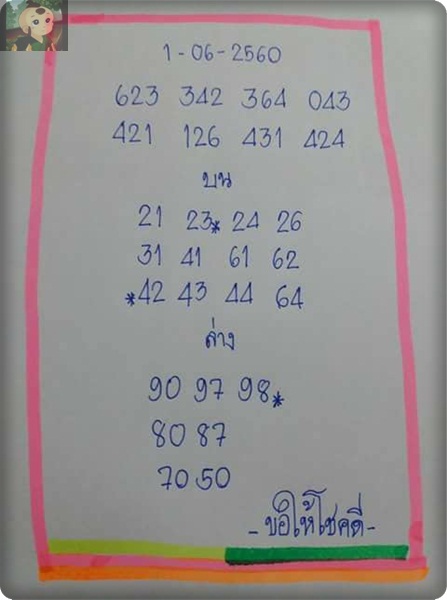 1-06-2560
623 342 364 043
421 126 431 424
บน
21 23* 24 26
31 41 61 62
*42 43 44 64
ล่าง
90 97 98*
80 87
70 50
-ขอให้โชคดี-